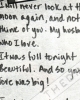 I will never look at the
moon again, and not
think of you. My husband
who I love.
It was full tonight
Beautiful. And So you
love was big!